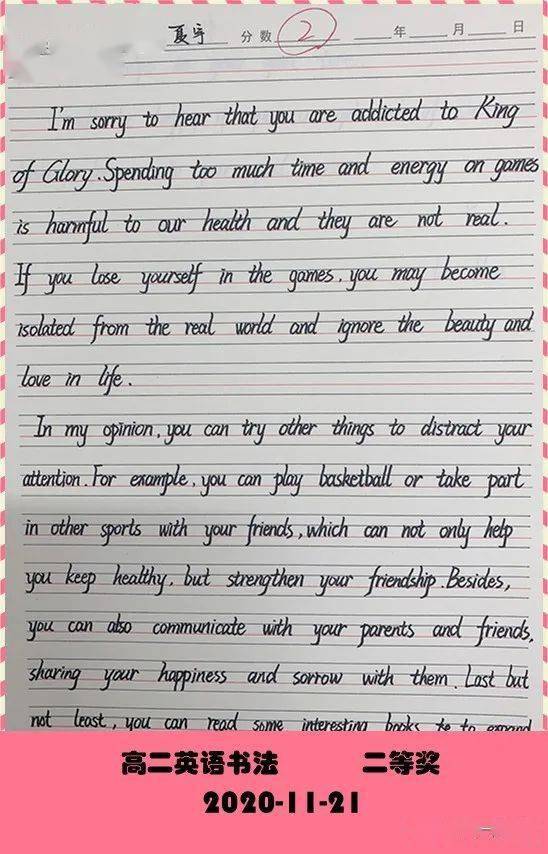 夏宇 分数 2 年 月 日
I'm sorry to hear that you are addicted to King
of Glory. Spending too much time and energy on games
is harmful to our health and they are not real.
If you lose yourself in the games, you may become
isolated from the real world and ignore the beauty and
love in life.
In my opinion, you can try other things to distract your
attention. For example, you can play basketball or take part
in other sports with your friends, which can not only help
you keep healthy, but strengthen your friendship. Besides,
you can also communicate with your parents and friends,
sharing your happiness and sorrow with them. Last but
not least, you can read some interesting books to expand
高二英语书法 二等奖
2020-11-21